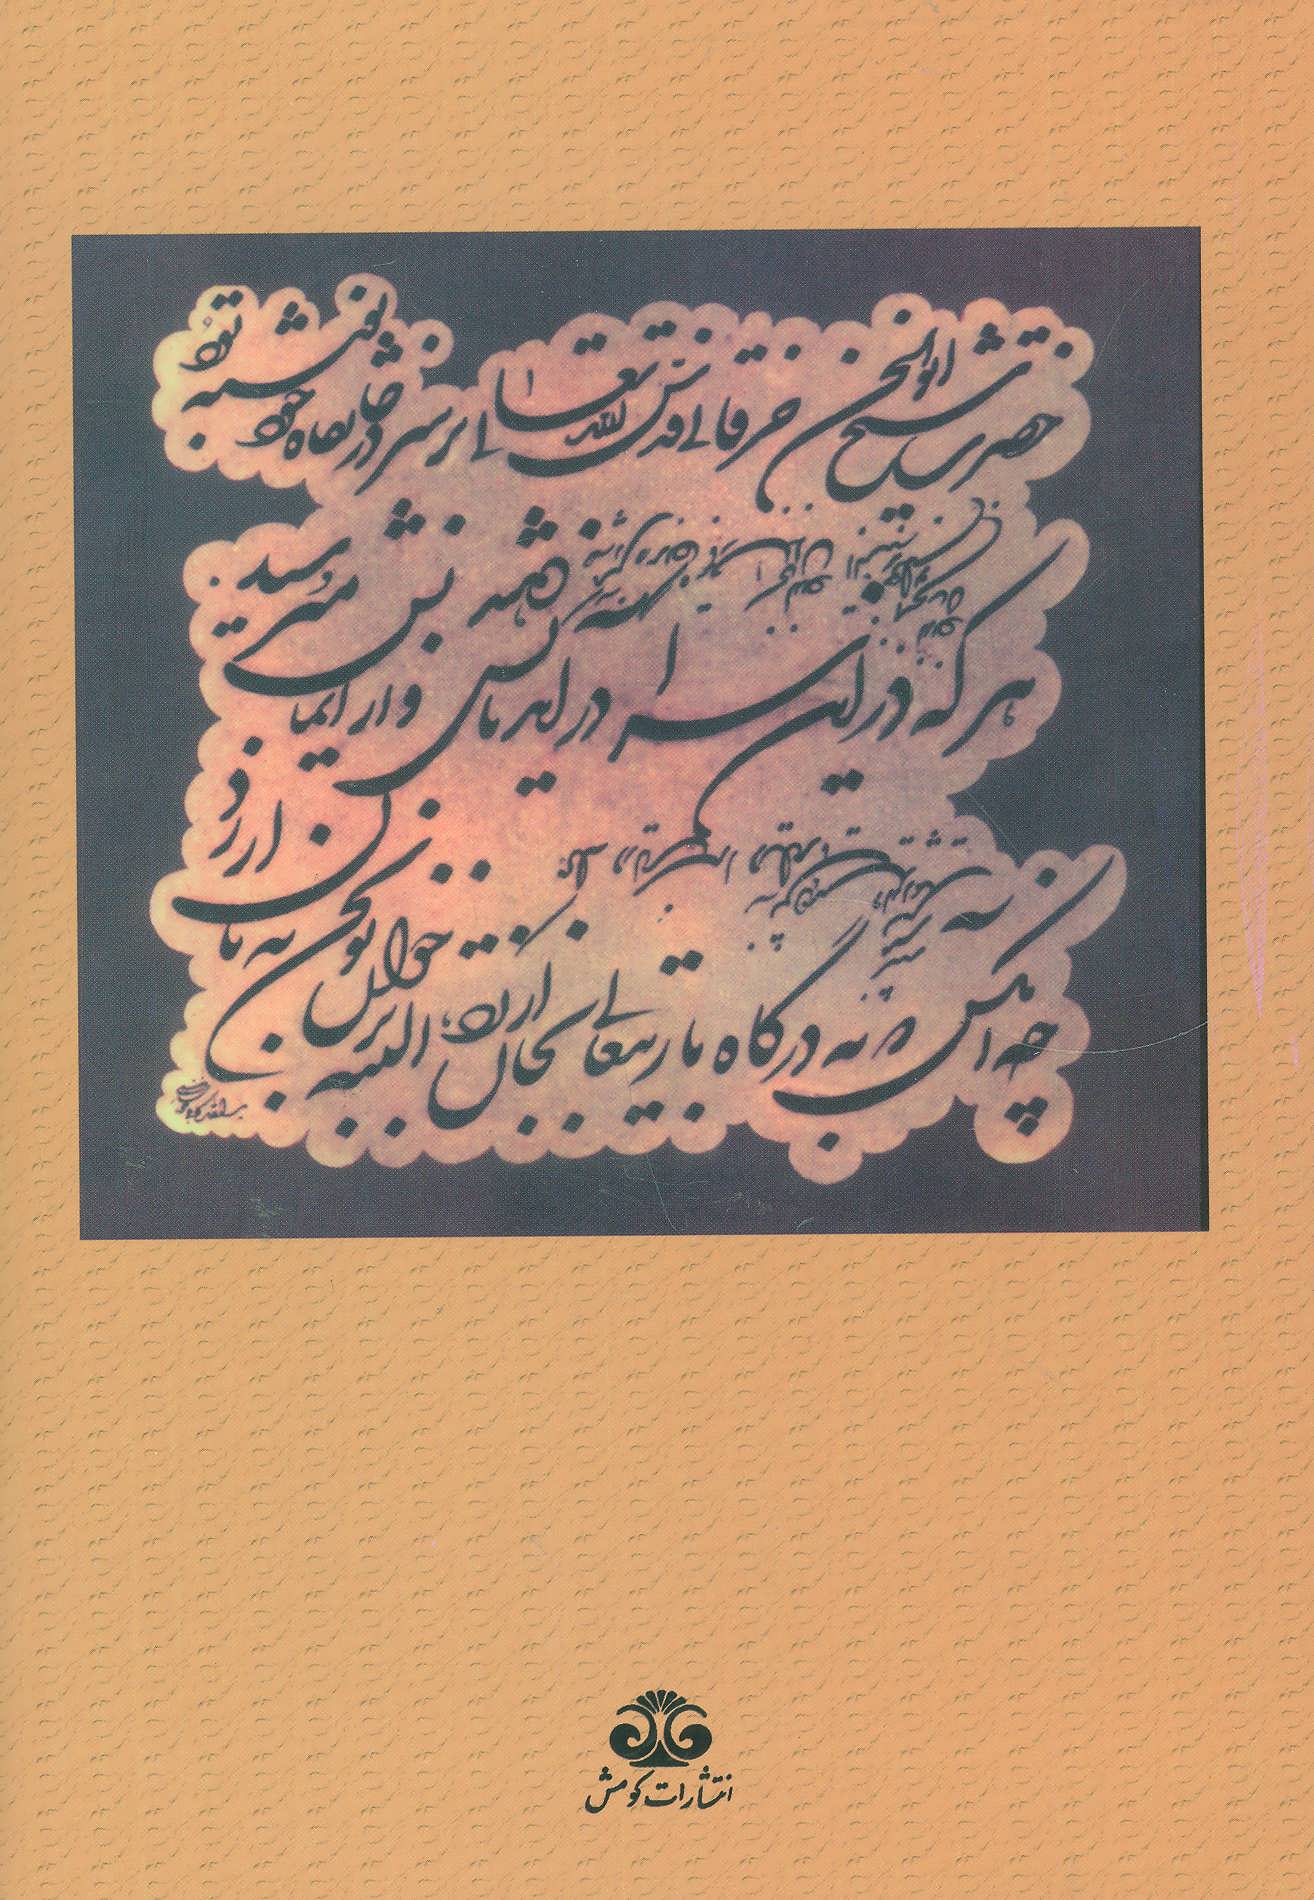 حضرت شیخ ابوالحسن خرقانی قدس الله تعالی بر سر در خانقاه خود نوشته بود
هر که در این سرا درآید نانش دهید و از ایمانش مپرسید
چه آنکس که به درگاه باریتعالی بجان ارزد البته بر خوان بوالحسن به نان ارزد
انتشارات کومش